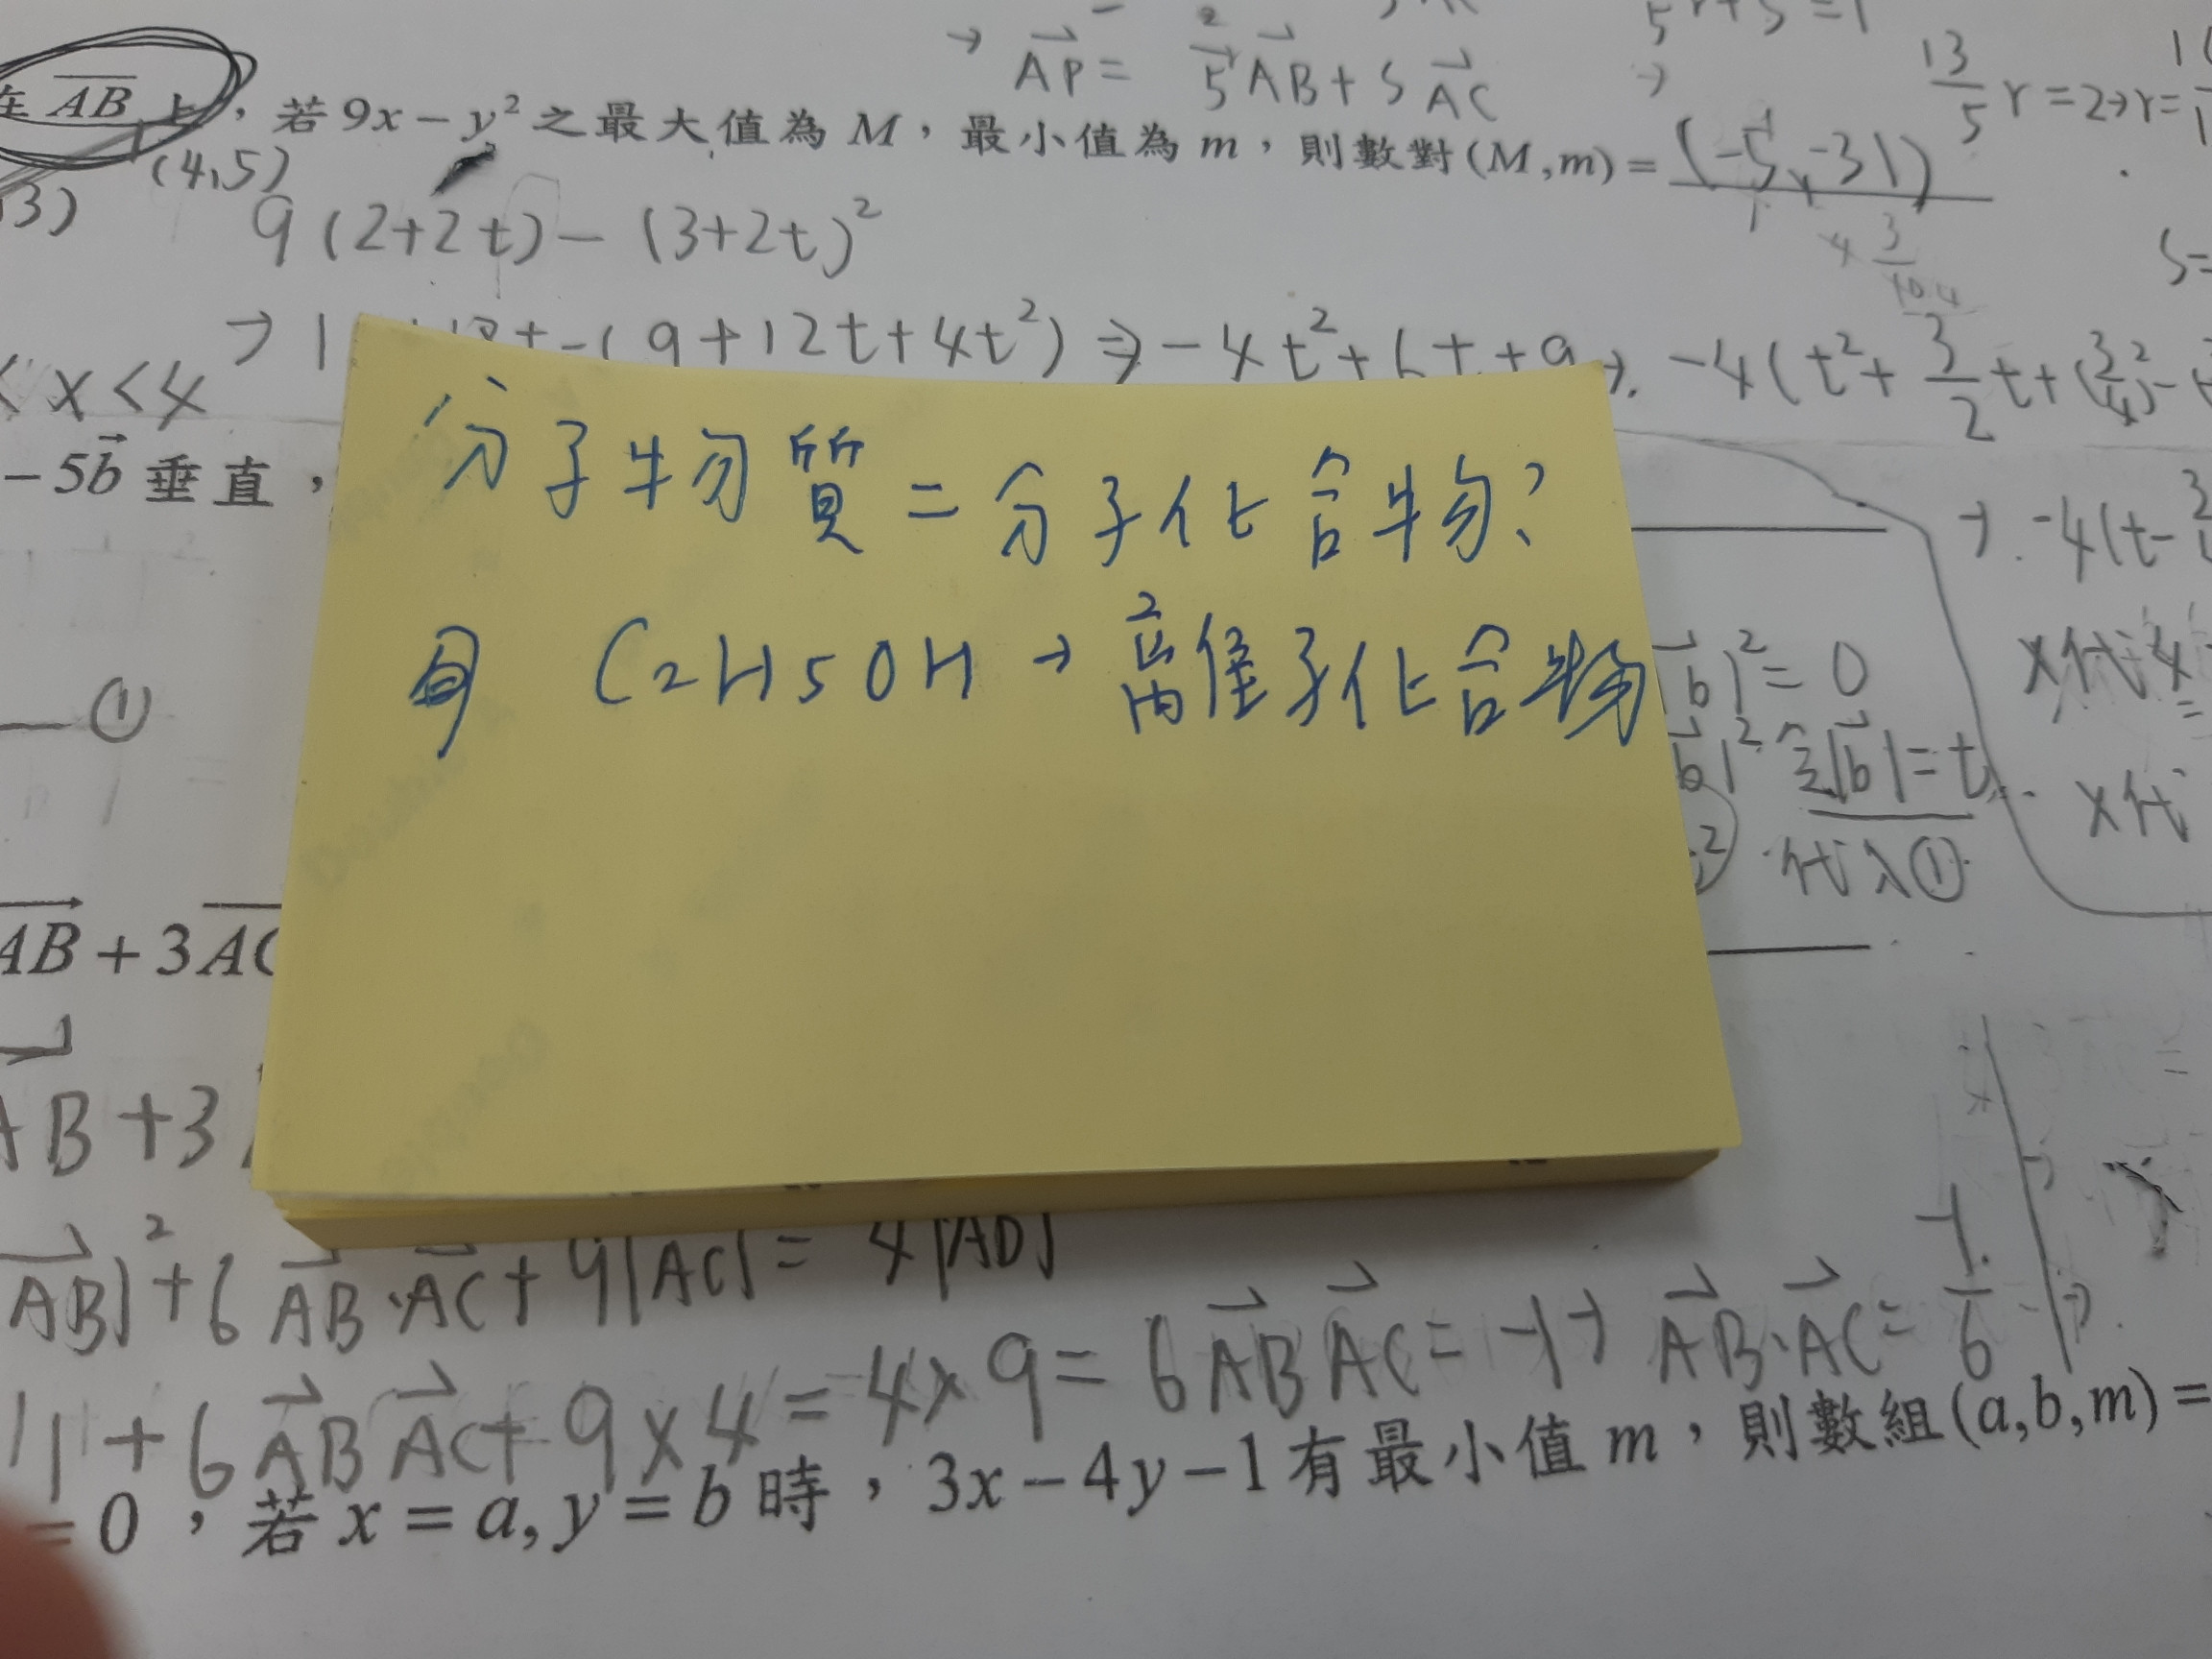 → AP = 2/5 AB + S AC
13/5 r = 2 → r =
在 AB 上，若 9x − y² 之最大值為 M，最小值為 m，則數對 (M, m) = (-5, -31)
(4,5)
3)
9(2+2t) − (3+2t)²
(9+12t+4t²) ⇒ -4t²+6t+9 → -4(t²+ 3/2 t+(3/4)²-
x<4
−5b 垂直，
分子物質 = 分子化合物？
C2H5OH → 離子化合物
→ -4(t-
x代4
b|²=0
b|² 令|b|=t
x代
代入①
①
AB + 3AC
AB +3
AB|²+6 AB·AC + 9|AC| = 4|AD|
11+6 AB AC + 9×4 = 4×9 = 6 AB AC = -1 → AB·AC = -1/6
=0，若 x = a, y = b 時，3x − 4y − 1 有最小值 m，則數組 (a, b, m) =